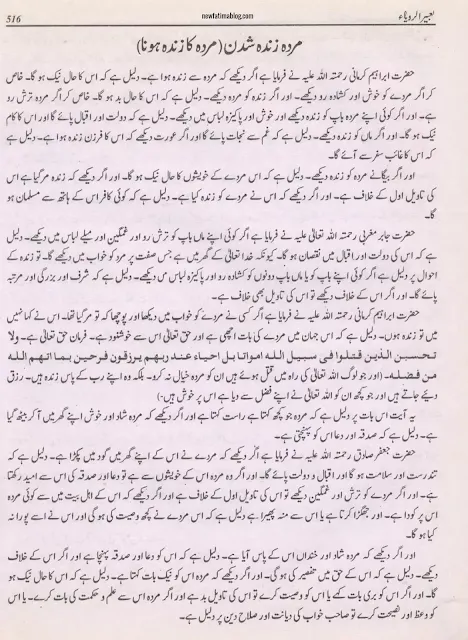 516
newfatimablog.com
تعبیر الرویاء
مردہ زندہ شدن (مردہ کا زندہ ہونا)
حضرت ابراہیم کرمانی رحمتہ اللہ علیہ نے فرمایا ہے اگر دیکھے کہ مردہ سے زندہ ہوا ہے۔ دلیل ہے کہ اس کا حال نیک ہو گا۔ خاص
کر اگر مردے کو خوش اور کشادہ رو دیکھے۔ اور اگر زندہ کو مردہ دیکھے۔ دلیل ہے کہ اس کا حال بد ہو گا۔ خاص کر اگر مردہ ترش رو
ہے۔ اور اگر کوئی اپنے مردہ باپ کو زندہ دیکھے اور خوش اور پاکیزہ لباس میں دیکھے۔ دلیل ہے کہ دولت اور اقبال پائے گا اور اس کا کام
نیک ہو گا۔ اور اگر ماں کو زندہ دیکھے۔ دلیل ہے کہ غم سے نجات پائے گا اور اگر عورت دیکھے کہ اس کا فرزند زندہ ہوا ہے۔ دلیل ہے
کہ اس کا غائب سفر سے آئے گا۔
اور اگر بیگانے مردہ کو زندہ دیکھے۔ دلیل ہے کہ اس مردے کے خویشوں کا حال نیک ہو گا۔ اور اگر دیکھے کہ زندہ مر گیا ہے اس
کی تاویل اول کے خلاف ہے۔ اور اگر دیکھے کہ اس نے مردے کو زندہ کیا ہے۔ دلیل ہے کہ کوئی کافر اس کے ہاتھ سے مسلمان ہو
گا۔
حضرت جابر مغربی رحمتہ اللہ تعالٰی علیہ نے فرمایا ہے اگر کوئی اپنے ماں باپ کو ترش رو اور غمگین اور میلے لباس میں دیکھے۔ دلیل
ہے کہ اس کی دولت اور اقبال میں نقصان ہو گا۔ کیونکہ خدا تعالٰی کے گھر میں ہے جس صفت پر مرد کو خواب میں دیکھے۔ تو زندہ کے
احوال پر دلیل ہے اگر کوئی اپنے باپ کو یا ماں باپ دونوں کو کشادہ رو اور پاکیزہ لباس میں دیکھے۔ دلیل ہے کہ شرف اور بزرگی اور مرتبہ
پائے گا۔ اور اگر اس کے خلاف دیکھے تو اس کی تاویل بھی خلاف ہے۔
حضرت ابراہیم کرمانی رحمتہ اللہ علیہ نے فرمایا ہے اگر کسی نے مردے کو خواب میں دیکھا اور پوچھا کہ تو مر گیا تھا۔ اس نے کہا نہیں
میں تو زندہ ہوں۔ دلیل ہے کہ اس جہان میں مردے کی بات اچھی ہے اور حق تعالٰی اس سے خوشنود ہے۔ فرمان حق تعالٰی ہے۔ ولا
تحسبن الذین قتلوا فی سبیل اللہ امواتا بل احیاء عند ربھم یرزقون فرحین بما اتھم اللہ
من فضلہ۔ (اور جو لوگ اللہ تعالٰی کی راہ میں قتل ہوئے ہیں ان کو مردہ خیال نہ کرو۔ بلکہ وہ اپنے رب کے پاس زندہ ہیں۔ رزق
دیئے جاتے ہیں اور جو کچھ ان کو اللہ تعالٰی نے اپنے فضل سے دیا ہے اس پر خوش ہیں۔)
یہ آیت اس بات پر دلیل ہے کہ مردہ جو کچھ کہتا ہے راست کہتا ہے اور اگر دیکھے کہ مردہ شاد اور خوش اپنے گھر میں آ کر بیٹھ گیا
ہے۔ دلیل ہے کہ صدقہ اور دعا اس کو پہنچتی ہے۔
حضرت جعفر صادق رحمتہ اللہ علیہ نے فرمایا ہے اگر دیکھے کہ مردے نے اس کے اپنے گھر میں گود میں پکڑا ہے۔ دلیل ہے کہ
تندرست اور سلامت ہو گا اور اقبال و دولت پائے گا۔ اور اگر وہ مردہ اس کے خویشوں سے ہے تو دعا اور صدقہ کی اس سے امید رکھتا
ہے۔ اور اگر مردے کو ترش اور غمگین دیکھے تو اس کی تاویل اول کے خلاف ہے اور اگر دیکھے کہ اس کے اہل بیت میں سے کوئی مردہ
اس پر کودا ہے۔ اور جھگڑا کرتا ہے یا اس سے منہ پھیرا ہے دلیل ہے کہ اس مردے نے کچھ وصیت کی ہو گی اور اس نے اسے پورا نہ
کیا ہو گا۔
اور اگر دیکھے کہ مردہ شاد اور خنداں اس کے پاس آیا ہے۔ دلیل ہے کہ اس کو دعا اور صدقہ پہنچا ہے اور اگر اس کے خلاف
دیکھے۔ دلیل ہے کہ اس کے حق میں تقصیر کی ہو گی۔ اور اگر دیکھے کہ مردہ اس کو نیک بات کہتا ہے۔ دلیل ہے کہ اس کا حال نیک ہو
گا۔ اور اگر اس کو بری بات کہے یا اس کو وصیت کرے تو اس کی تاویل بد ہے اور اگر مردہ اس سے علم و حکمت کی بات کرے۔ یا اس
کو وعظ اور نصیحت کرے تو صاحب خواب کی دیانت اور صلاح دین پر دلیل ہے۔